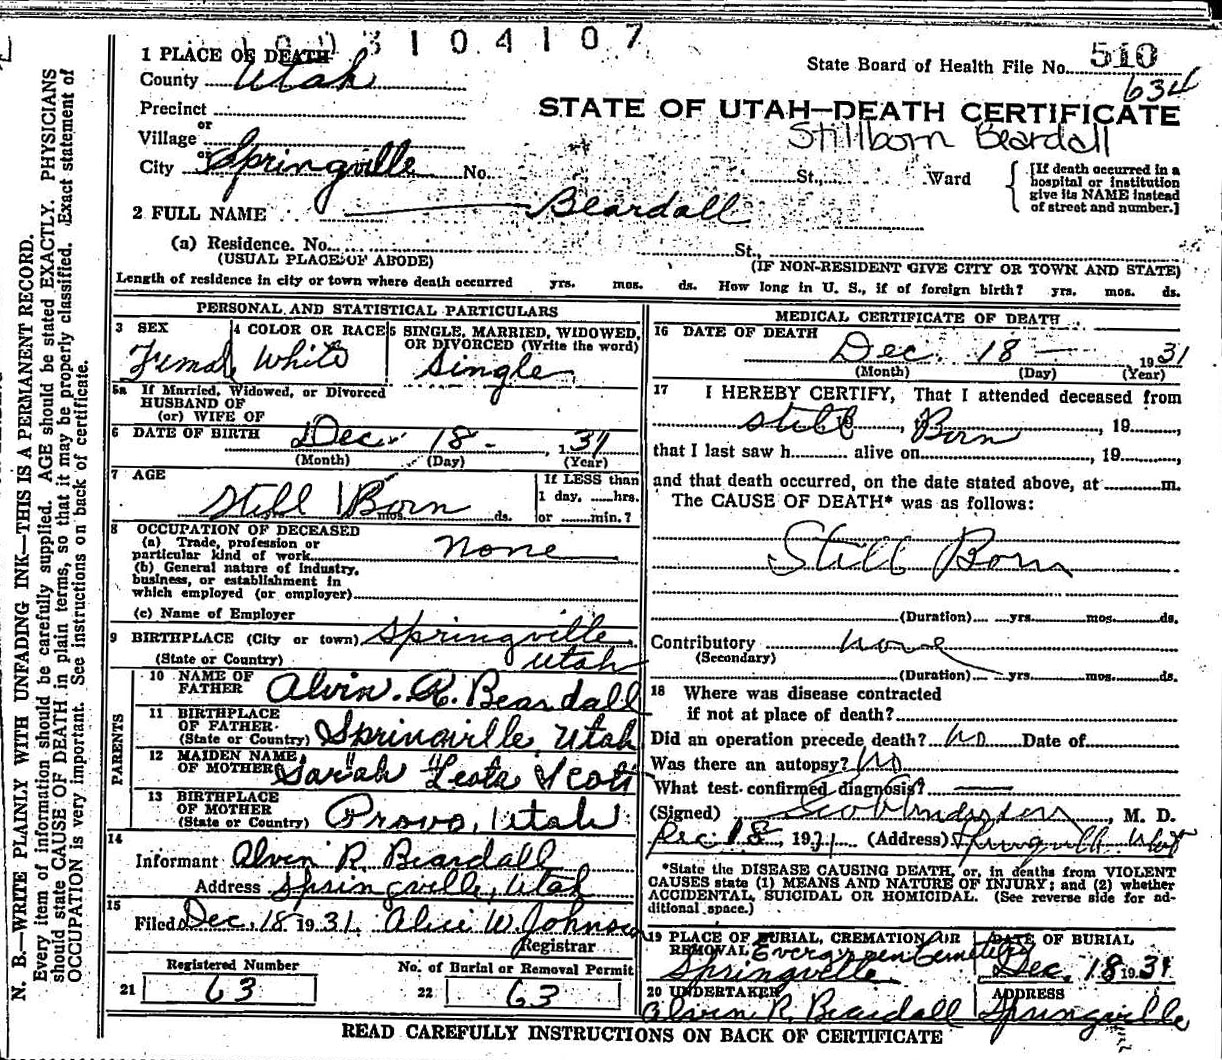 1003104107
510
State Board of Health File No.
634
1 PLACE OF DEATH
County Utah
Precinct
or
Village
or
City Springville No. St., Ward
STATE OF UTAH—DEATH CERTIFICATE
Stillborn Beardall
[If death occurred in a
hospital or institution
give its NAME instead
of street and number.]
2 FULL NAME Beardall
(a) Residence. No. St.,
(USUAL PLACE OF ABODE) (IF NON-RESIDENT GIVE CITY OR TOWN AND STATE)
Length of residence in city or town where death occurred yrs. mos. ds. How long in U. S., if of foreign birth? yrs. mos. ds.
PERSONAL AND STATISTICAL PARTICULARS
3 SEX 4 COLOR OR RACE 5 SINGLE, MARRIED, WIDOWED,
OR DIVORCED (Write the word)
Female White Single
5a If Married, Widowed, or Divorced
HUSBAND OF
(or) WIFE OF
6 DATE OF BIRTH Dec. 18 - , 1931
(Month) (Day) (Year)
7 AGE If LESS than
1 day, hrs.
Still Born mos. ds. or min.?
8 OCCUPATION OF DECEASED
(a) Trade, profession or
particular kind of work none
(b) General nature of industry,
business, or establishment in
which employed (or employer)
(c) Name of Employer
9 BIRTHPLACE (City or town) Springville
(State or Country) Utah
PARENTS
10 NAME OF
FATHER Alvin. R. Beardall
11 BIRTHPLACE
OF FATHER
(State or Country) Springville Utah
12 MAIDEN NAME
OF MOTHER Sarah Leota Scott
13 BIRTHPLACE
OF MOTHER
(State or Country) Provo, Utah
14
Informant Alvin R. Beardall
Address Springville, Utah
15
Filed Dec. 18 1931. Alice W. Johnson
Registrar
Registered Number No. of Burial or Removal Permit
21 63 22 63
MEDICAL CERTIFICATE OF DEATH
16 DATE OF DEATH
Dec. 18 — 1931
(Month) (Day) (Year)
17 I HEREBY CERTIFY, That I attended deceased from
Still , Born , 19 ,
that I last saw h alive on , 19 ,
and that death occurred, on the date stated above, at m.
The CAUSE OF DEATH* was as follows:
Still Born
(Duration) yrs. mos. ds.
Contributory none
(Secondary)
(Duration) yrs. mos. ds.
18 Where was disease contracted
if not at place of death?
Did an operation precede death? No Date of
Was there an autopsy? No
What test confirmed diagnosis? —
(Signed) Geo Anderson, M. D.
Dec 18, 1931 (Address) Springville Utah
*State the DISEASE CAUSING DEATH, or, in deaths from VIOLENT
CAUSES state (1) MEANS AND NATURE OF INJURY; and (2) whether
ACCIDENTAL, SUICIDAL OR HOMICIDAL. (See reverse side for ad-
ditional space.)
19 PLACE OF BURIAL, CREMATION OR DATE OF BURIAL
REMOVAL, Evergreen Cemetery
Springville Dec. 18 1931
20 UNDERTAKER ADDRESS
Alvin R. Beardall Springville
READ CAREFULLY INSTRUCTIONS ON BACK OF CERTIFICATE
N. B.—WRITE PLAINLY WITH UNFADING INK—THIS IS A PERMANENT RECORD.
Every item of information should be carefully supplied. AGE should be stated EXACTLY. PHYSICIANS
should state CAUSE OF DEATH in plain terms, so that it may be properly classified. Exact statement of
OCCUPATION is very important. See instructions on back of certificate.